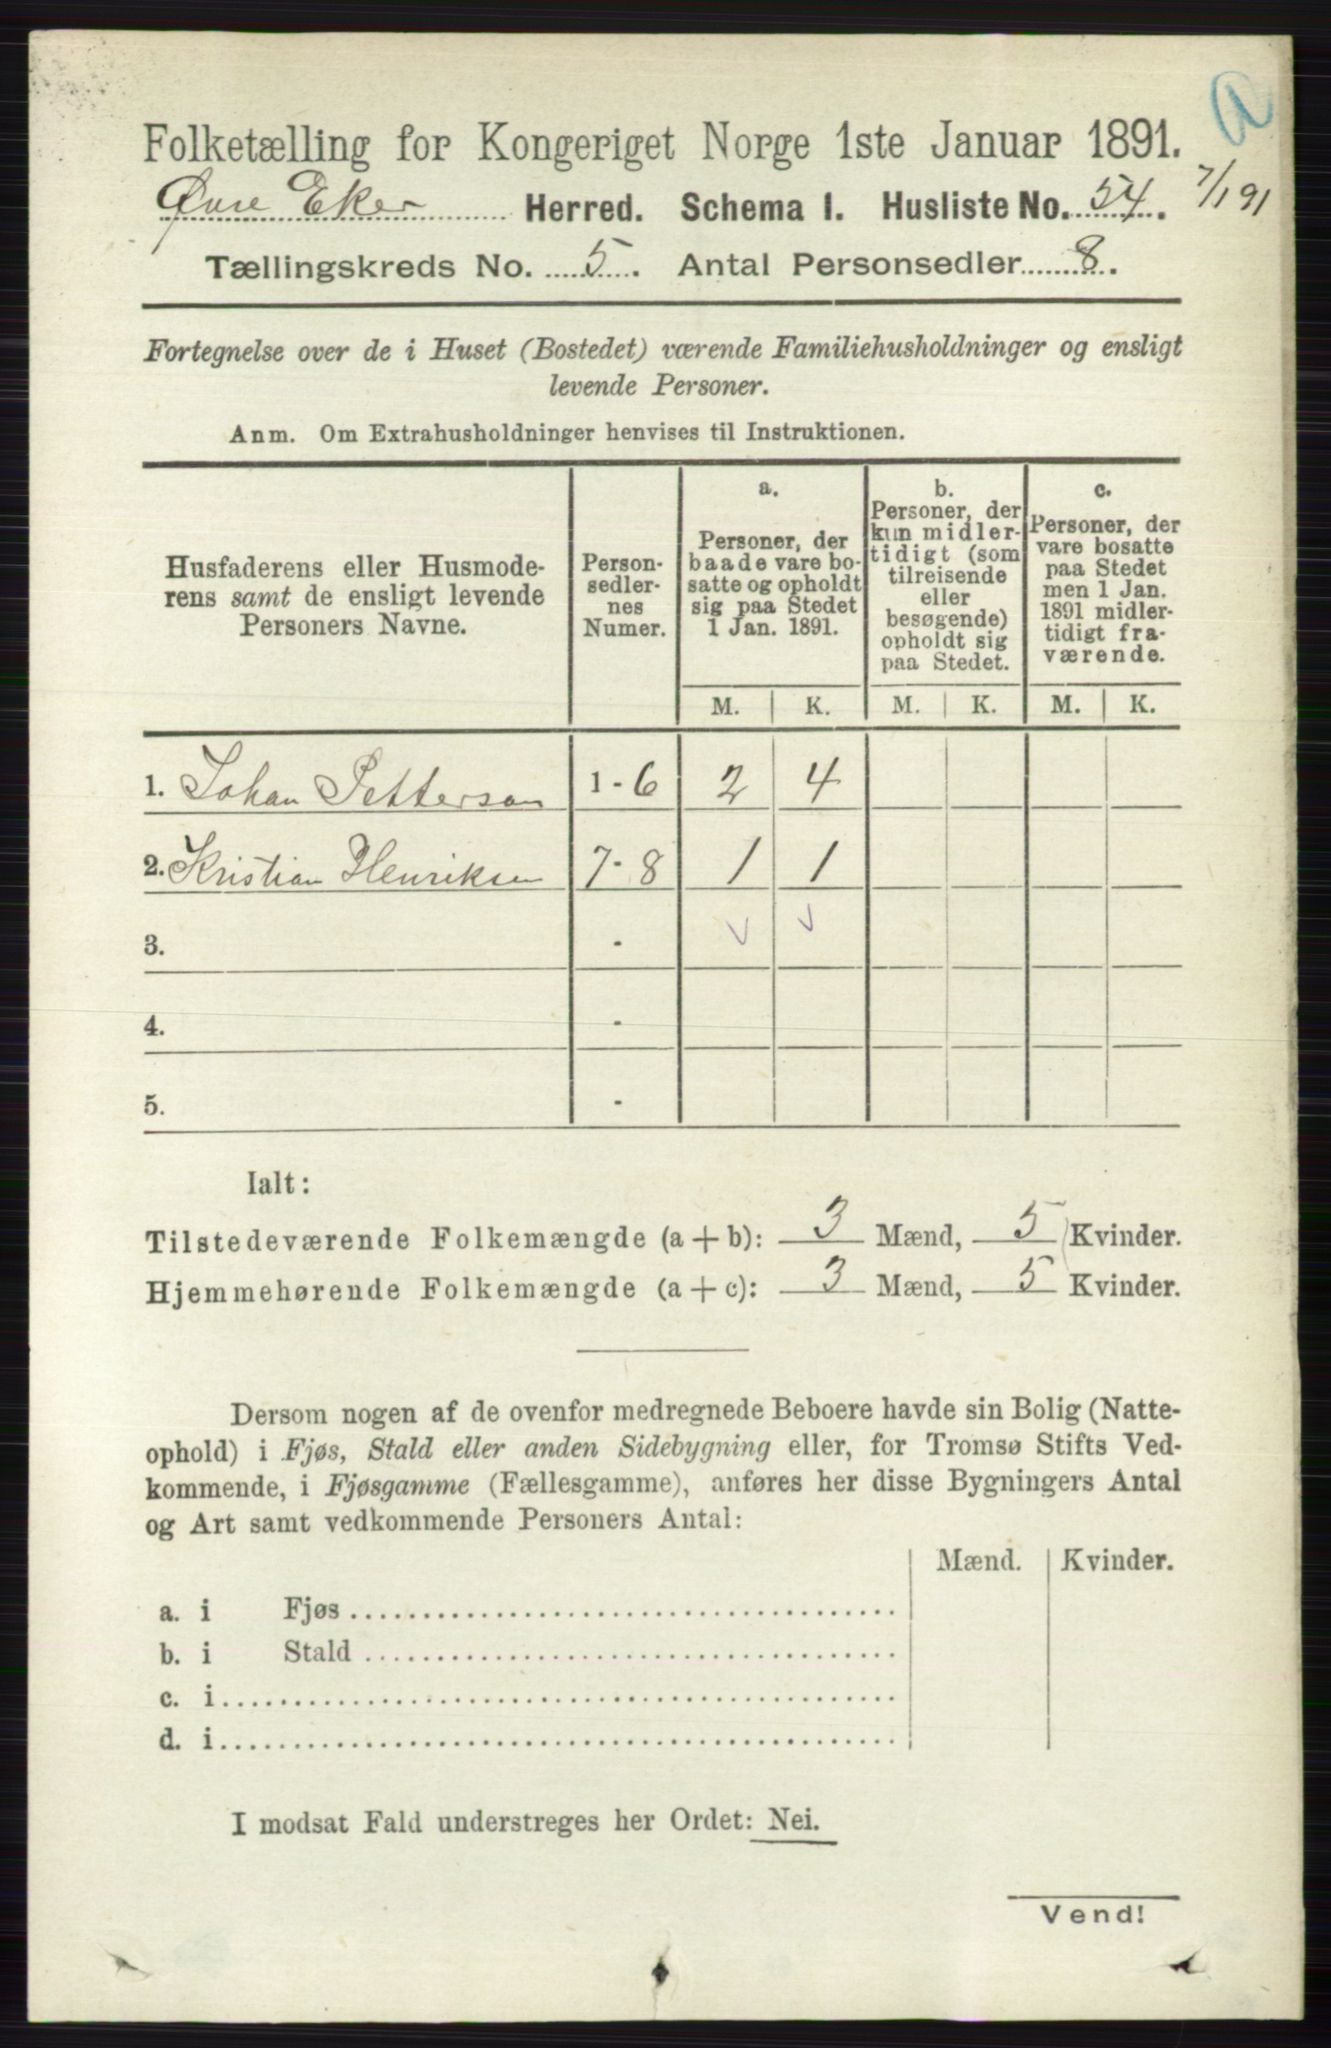 a
Folketælling for Kongeriget Norge 1ste Januar 1891.
Øvre Eker Herred. Schema I. Husliste No. 54. 7/1 91
Tællingskreds No. 5. Antal Personsedler 8.
Fortegnelse over de i Huset (Bostedet) værende Familiehusholdninger og ensligt
levende Personer.
Anm. Om Extrahusholdninger henvises til Instruktionen.
Husfaderens eller Husmode-
rens samt de ensligt levende
Personers Navne.
Person-
sedler-
nes
Numer.
a.
Personer, der
baade vare bo-
satte og opholdt
sig paa Stedet
1 Jan. 1891.
b.
Personer, der
kun midler-
tidigt (som
tilreisende
eller
besøgende)
opholdt sig
paa Stedet.
c.
Personer, der
vare bosatte
paa Stedet
men 1 Jan.
1891 midler-
tidigt fra-
værende.
M. K. M. K. M. K.
1. Johan Petterson 1-6 2 4
2. Kristian Henriksen 7-8 1 1
3. -
4. -
5. -
Ialt:
Tilstedeværende Folkemængde (a+b): 3 Mænd, 5 Kvinder.
Hjemmehørende Folkemængde (a+c): 3 Mænd, 5 Kvinder.
Dersom nogen af de ovenfor medregnede Beboere havde sin Bolig (Natte-
ophold) i Fjøs, Stald eller anden Sidebygning eller, for Tromsø Stifts Ved-
kommende, i Fjøsgamme (Fællesgamme), anføres her disse Bygningers Antal
og Art samt vedkommende Personers Antal:
Mænd. Kvinder.
a. i Fjøs
b. i Stald
c. i
d. i
I modsat Fald understreges her Ordet: Nei.
Vend!